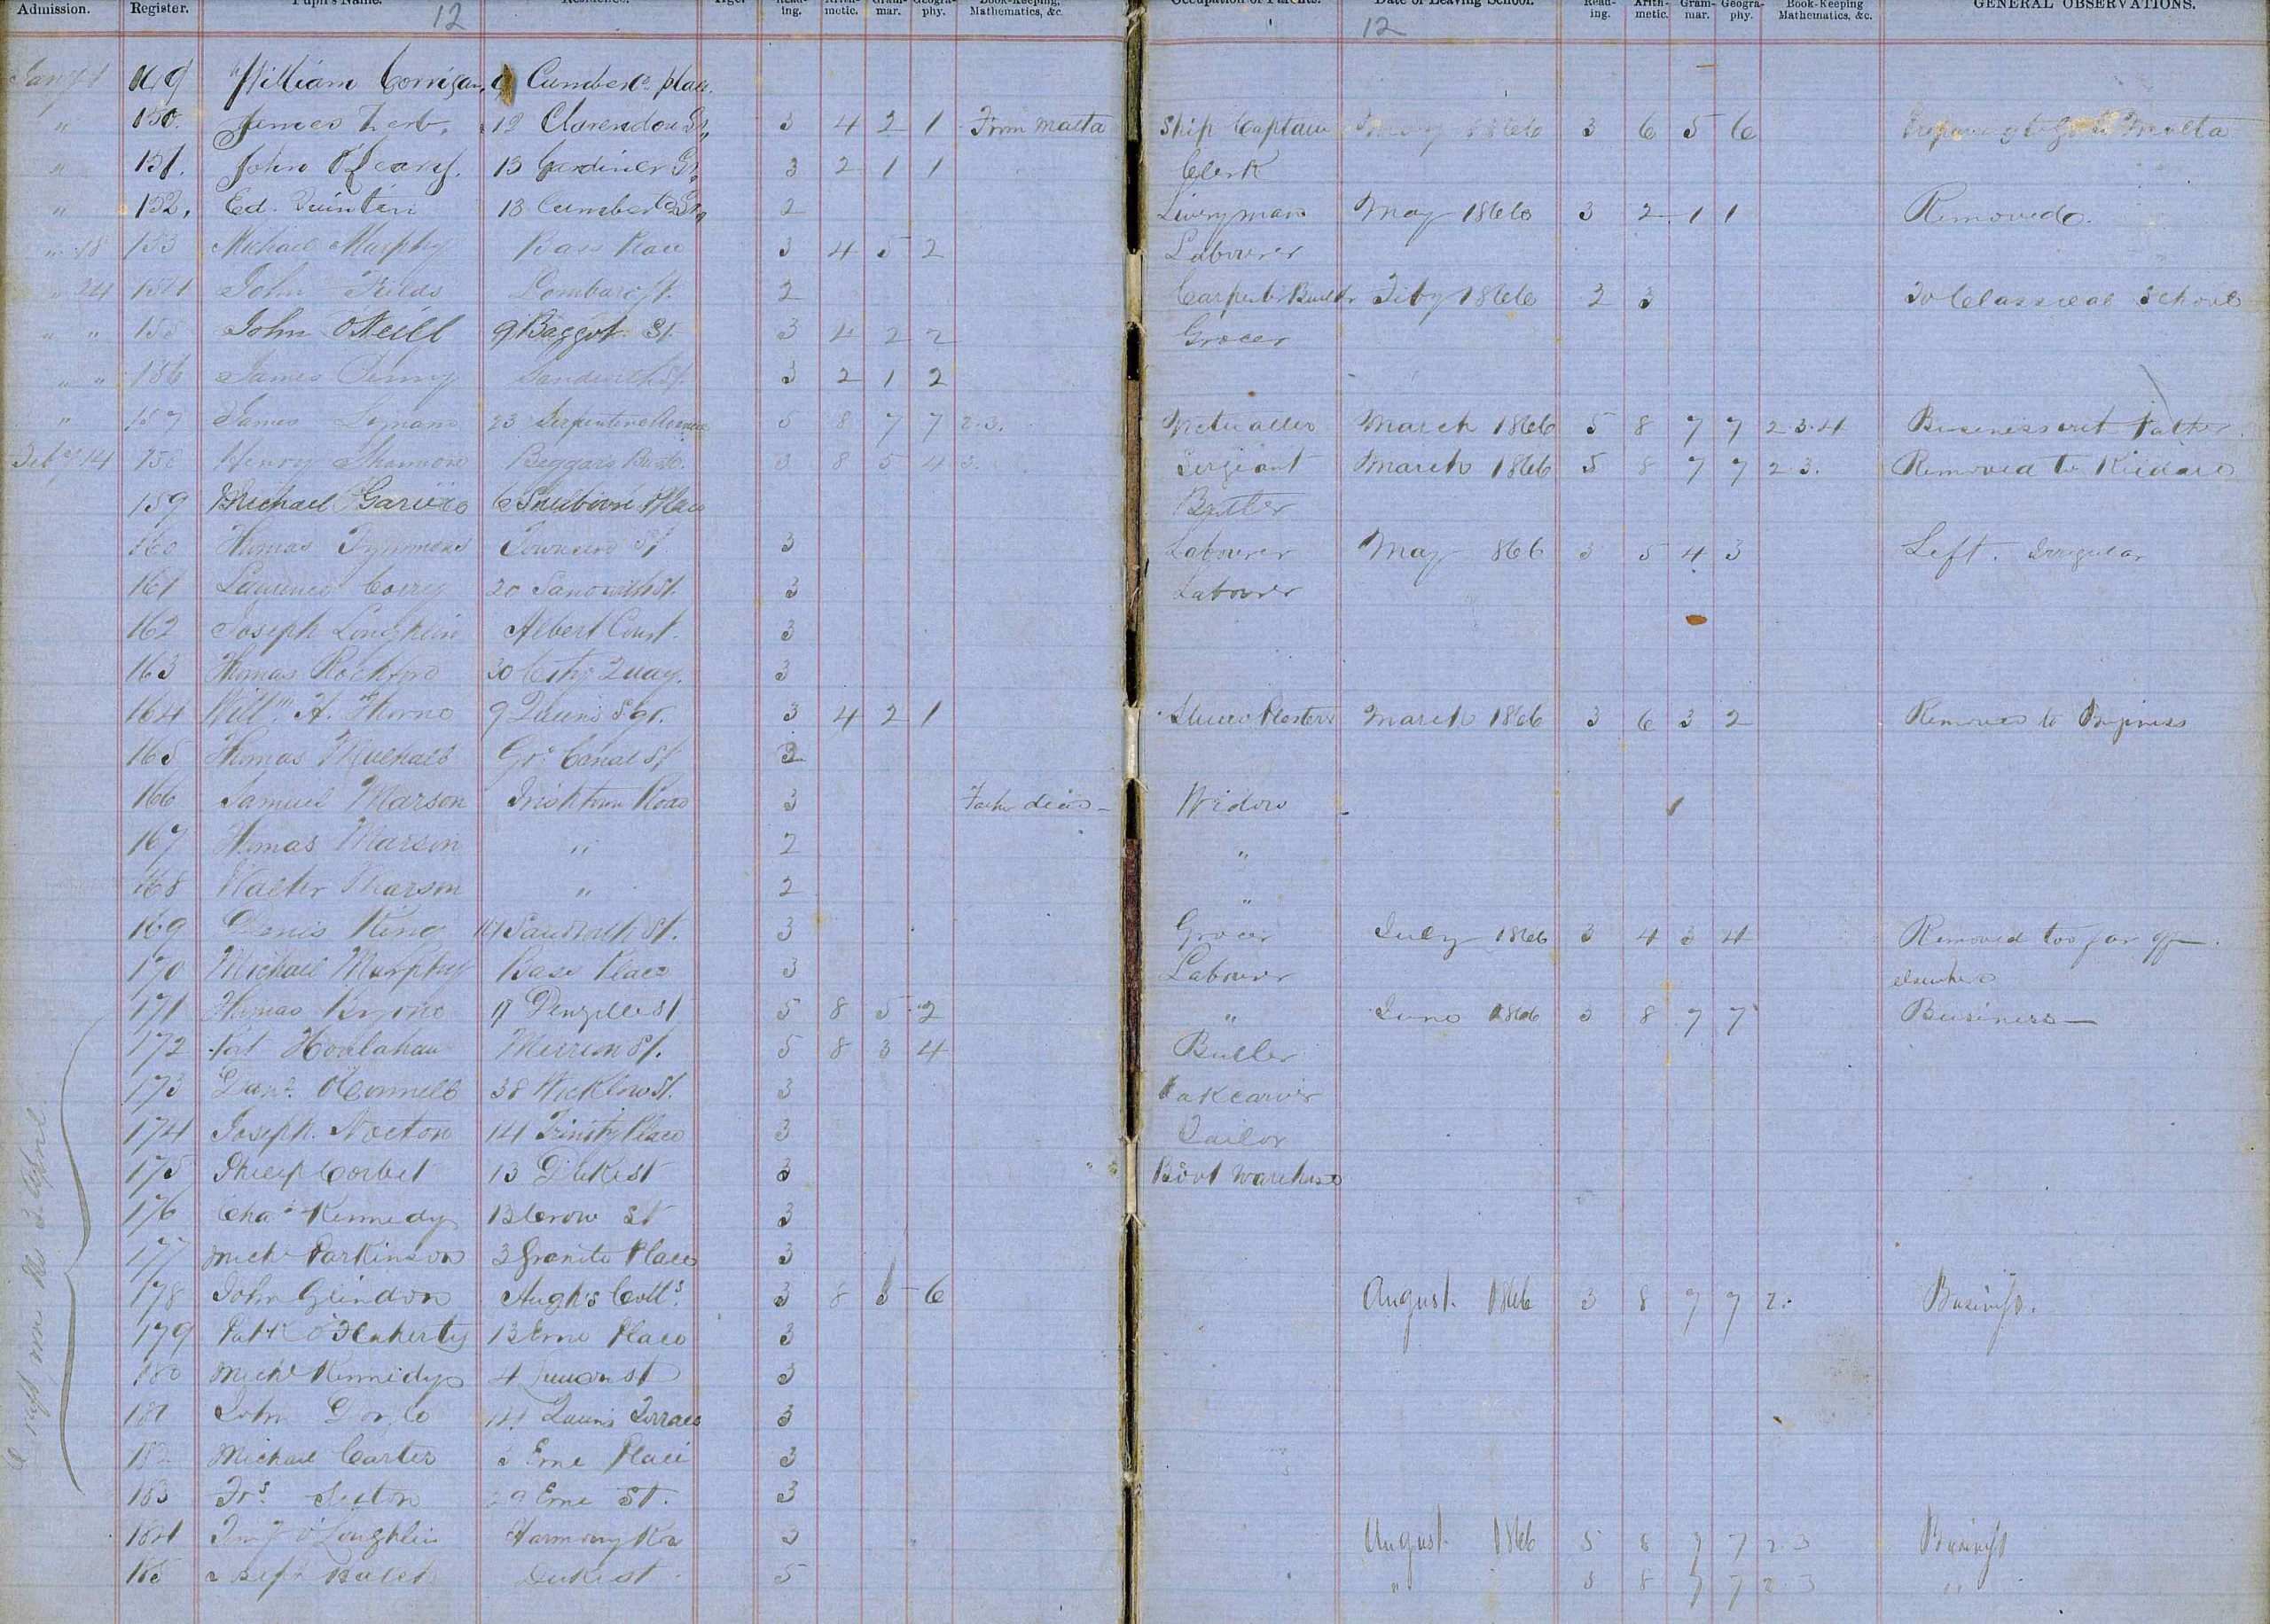 Admission. Register. Pupil's Name. Residence. Age. Read-ing. Arith-metic. Gram-mar. Geogra-phy. Book-Keeping, Mathematics, &c. Occupation of Parents. Date of Leaving School. Read-ing. Arith-metic. Gram-mar. Geogra-phy. Book-Keeping Mathematics, &c. GENERAL OBSERVATIONS.
12 12
149 William Corrigan, Cumberd. place.
" 150. James 12 Clarendon St, 3 4 2 1 From Malta Ship Captain May 1866 3 6 5 6 to Malta
" 151. John O'Leary. 13 Gardiner St, 3 2 1 1 Clerk
" 152. Ed. Quintin 13 2 Liveryman May 1866 3 2 1 1 Removed.
" 18 153 Michael Murphy Bass Place 3 4 5 2 Labourer
" 24 154 John Fields Lombard St. 2 Carpenter Feby 1866 2 3 To Classical School
" " 155 John O'Neill 9 Baggot St. 3 4 2 2 Grocer
" " 156 James Sandwith St. 3 2 1 2
" 157 James 23 Serpentine Avenue 5 8 7 7 2.3. Victualler March 1866 5 8 7 7 2 3.4 Business wit father.
Feby 14 158 Henry Shannon Beggars Bush. 3 8 5 4 3. Sergeant March 1866 5 8 7 7 2 3. Removed to Kildare
159 Michael 6 Place Butler
160 Thomas Townsend St 3 Labourer May 866 3 5 4 3 Left. Irregular
161 Laurence 20 Sandwith St. 3 Labourer
162 Joseph Loughlin Albert Court. 3
163 Thomas Rochford 30 City Quay. 3
164 Willm. H. Thorne 9 Queens Sqr. 3 4 2 1 Stucco Plasterer March 1866 3 6 3 2 Removed to Business
165 Thomas Mulhall Gr. Canal St 2
166 Samuel Marson Irishtown Road 3 Father dead – Widow
167 Thomas Marson " 2 "
168 Walter Marson " 2 "
169 Denis King Sandwith St. 3 Grocer July 1866 3 4 3 4 Removed too far off.
170 Michael Murphy Bass Place 3 Labourer elsewhere
171 Thomas Denzille St 5 8 5 2 " June 1866 3 8 7 7 Business
172 Pat Houlahan Merrion St. 5 8 3 4 Butler
173 Danl. O'Connell 38 Wicklow St. 3
174 Joseph. Norton 14 Trinity Place 3 Tailor
175 Philip Corbet 13 Duke St 3 Boot
176 Chas Kennedy 13 Crow St 3
177 Michl Parkinson 3 Granite Place 3
178 John Grindon Cotts. 3 8 5 6 August. 1866 3 8 7 7 2. Business.
179 Patk O'Flaherty 13 Erne Place 3
180 Michl Kennedy 4 St 3
181 John Doyle 14 Queens Terrace 3
182 Michael Carter 3 Erne Place 3
183 Frs. Sexton 29 Erne St. 3
184 O'Loughlin Harmony Row 3 August. 1866 5 8 7 7 2 3 Business
185 Duke st 5 " 5 8 7 7 2 3 "